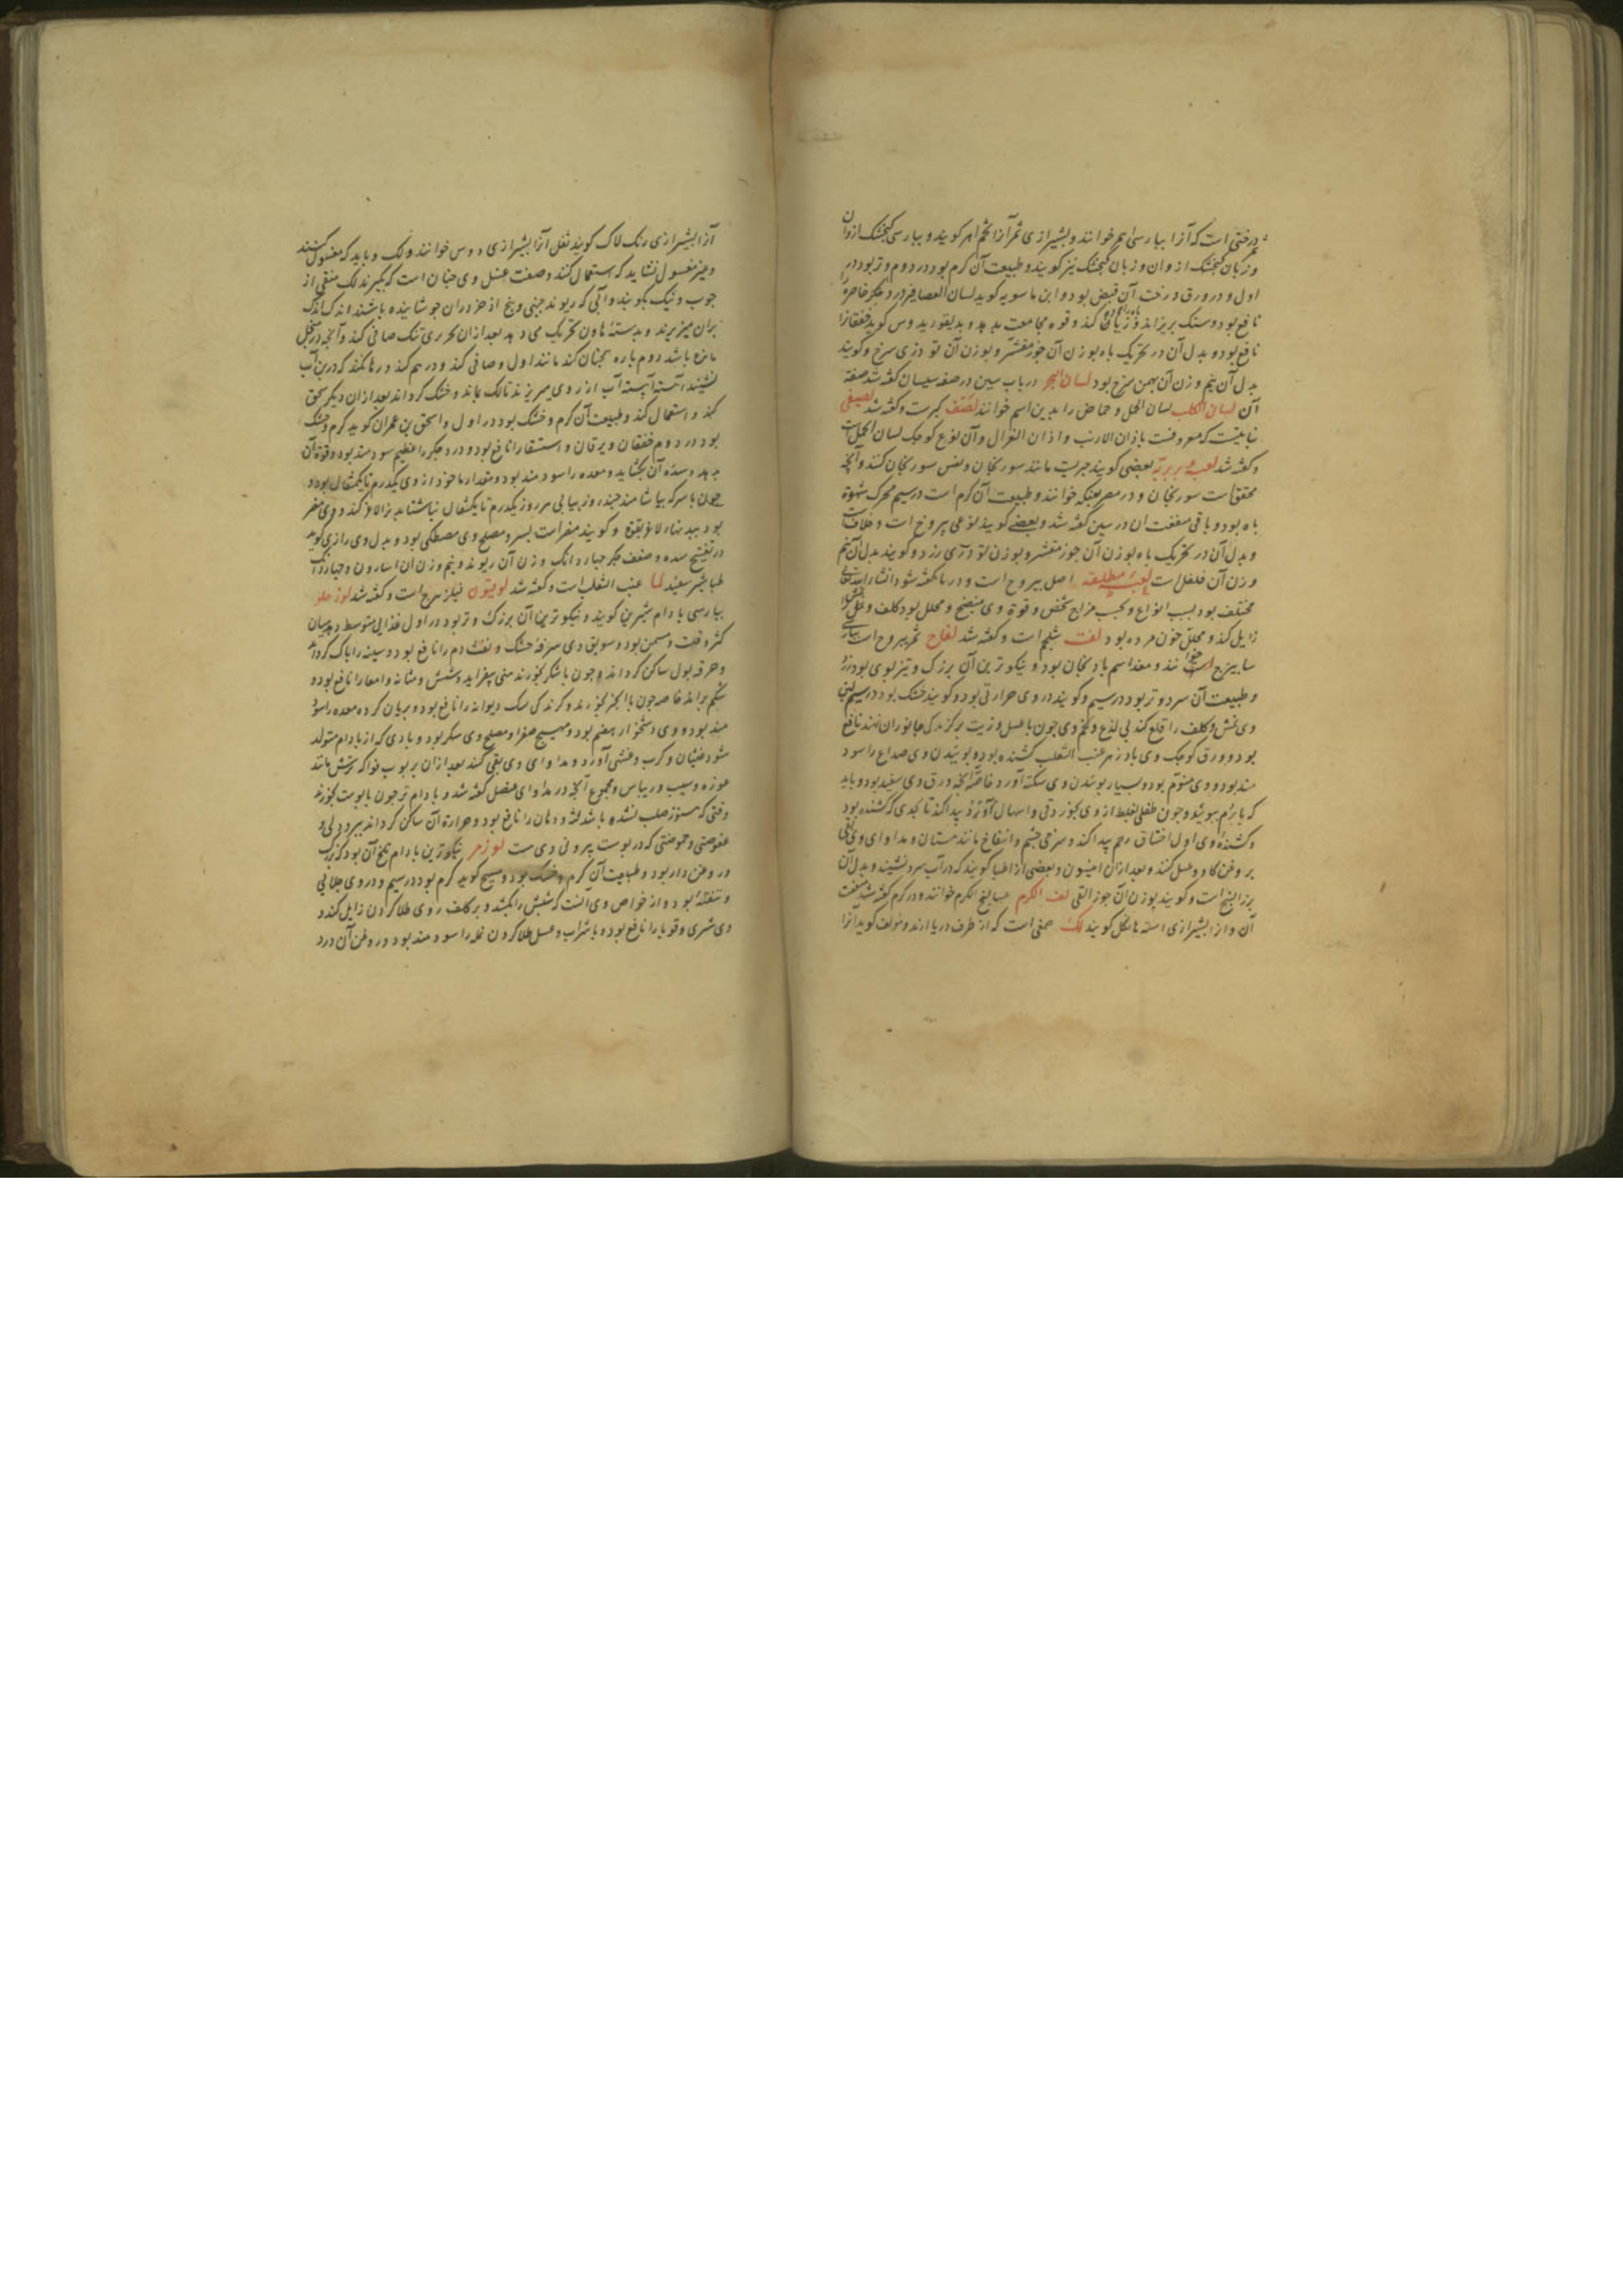 درختی است که آنرا بپارسی اهر خوانند و بشیرازی ثمر آنرا تخم اهر کویند و بپارسی کنجشک ازوان
و زبان کنجشک ازوان و زبان کنجشک نیز کویند و طبیعت آن کرم بود در دوم و تر بود در
اول و در ورق درخت آن قبض بود و ابن ماسویه کوید لسان العصافیر درد جکر خاصره
نافع بود و سنک بریزاند و کند و قوه مجامعت بدهد و دیسقوریدوس کوید خفقانرا
نافع بود و بدل آن در تحریک باه بوزن آن جوز مقشر و بوزن آن تودری سرخ و کویند
بدل آن نیم وزن آن بهمن سرخ بود لسان البحر در باب سین در صفه سیسان کفته شد صفة
آن لسان الکلب لسان الحمل و حماض را بدین اسم خوانند لصف کبرست و کفته شد لصیفی
نباتیست که معروفست باذان الارنب و اذان الغزال و آن نوع کوچک لسان الحمل است
و کفته شد لعبه بربریه بعضی کویند چیزیست مانند سورنجان و لعس سورنجان کنند و آنچه
محقق است سورنجان و در مصر عکنه خوانند و طبیعت آن کرم است در سیم محرک شهوة
باه بود و باقی منفعت آن در سین کفته شد و بعضی کویند نوعی یبروح است و خلافست
و بدل آن در تحریک باه بوزن آن جوز مقشر و بوزن تودری زرد و کویند بدل آن نیم
وزن آن فلفل است لعبه مطلیقه اصل یبروح است و در یا کفته شود انشاء الله تعالی
مختلف بود بسبب انواع و بحسب مزاج شخص و قوة وی منضج و محلل بود کلف و
زایل کند و محلل خون مرده بود لفت شلجم است و کفته شد لفاح ثمر یبروح است
سابیزج خوانند و مغد اسم بادنجان بود و نیکوترین آن بزرک و تیزبوی بود
و طبیعت آن سرد و تر بود در سیم و کویند در وی حرارتی بود و کویند خشک بود در سیم لبن
وی نمش و کلف را قلع کند بی لذع و تخم وی چون با عسل و زیت بر کزندکی جانوران نهند نافع
بود و ورق کوچک وی بادزهر عنب الثعلب کشنده بود و بوئیدن وی صداع را سود
مند بود و وی منوم بود و بسیار بوئیدن وی سکته آورد خاصه آنچه ورق وی سفید بود و باید
که بابرام ببویند و چون طفلی بغلط از وی بخورد قی و اسهال آورد پیدا کند تا بحدی که کشنده بود
و کشنده وی اول اختناق رحم پیدا کند و سرخی چشم و انتفاخ مانند مستان و مداوای وی بقی
بروغن کاو و عسل کنند و بعد از آن افیتمون و بعضی از اطبا کویند که در آب سرد نشیند و بدل آن
بزر البنج است و کویند بوزن آن جوز القی لف الکرم عسالیج الکرم خوانند و در کرم کفته شد منفعت
آن و از ابشیرازی کویند لک صمغی است که از طرف دریا ارند و مولف کوید انرا
آنرا بشیرازی رنک لاک کویند ثفل آنرا بشیرازی دوس خوانند و لک و باید که مغسول کنند
و غیر مغسول نشاید که استعمال کنند و صفت غسل وی چنان است که بکیرند لک منقی از
چوب و نیک بکوبند و آبی که ریوند چینی و بیخ اذخر در ان جوشانیده باشند اندک اندک
بران میریزند و بدسته هاون تحریک می دهد بعد از ان بحریری تنک صافی کند و آنچه در منخل
مانده باشد دوم باره همچنان کند مانند اول و صافی کند و درهم کند و رها کند که در بن آب
نشیند آهسته آهسته آب از روی میریزند تا لک بماند و خشک کرداند بعد از ان دیکر سحق
کند و استعمال کند و طبیعت آن کرم و خشک بود در اول و اسحق بن عمران کوید کرم و خشک
بود در دوم خفقان و یرقان و استسقا را نافع بود و درد جکر را عظیم سودمند بود و قوة آن
بدهد و سده آن بکشاید و معده را سودمند بود و مقدار ماخوذ از وی یکدرم تا یکمثقال بود و
چون با سرکه بیاشامند چند روز پیاپی هر روز یکدرم تا یکمثقال بناشتا بدن را لاغر کند و وی مضر
بود و کویند مضر است بسر و مصلح وی مصطکی بود و بدل وی رازی کوید
در تفتیح سده و ضعف جکر چهار دانک وزن آن ریوند و نیم وزن ان اسارون و چهار دانک
طباشیر سفید لما عنب الثعلب است و کفته شد لوبیون فیلزهرج است و کفته شد لوز حلو
بپارسی بادام شیرین کویند و نیکوترین آن بزرک و تر بود در اول غذائی متوسط دهد میان
کثرو قلت و مسمن بود و سویق وی سرفه خشک و نفث دم را نافع بود و سینه را پاک کرداند
و حرقه بول ساکن کرداند و چون با شکر بخورند منی بیفزاید و شش و مثانه و امعا را نافع بود و
شکم براند خاصه چون با انجیر بخورند و کزندکی سک دیوانه را نافع بود و بریان کرده معده را سود
مند بود و وی دشخوار هضم بود و مهیج صفرا و مصلح وی سکر بود و بادی که از بادام متولد
شود غثیان و کرب و غشی آورد و مداوای وی بقی کنند بعد از ان بربوب فواکه ترش مانند
غوره و سیب و ریباس و مجموع آنچه در مداوای عنصل کفته شد و بادام تر چون با پوست بخورند
وقتی که هنوز صلب نشده باشد لثه و دهان را نافع بود و حرارة آن ساکن کرداند ببرودتی و
عفوصتی و حموضتی که در پوست بیرونی وی هست لوز مر نیکوترین بادام تلخ آن بود که بزرک
و روغن دار بود و طبیعت آن کرم و خشک بود و مسیح کوید کرم بود در سیم و در وی جلائی
و تنقیة بود و از خواص وی آنست که شپش را بکشد و بر کلف روی طلا کردن زایل کند و
وی شری و قوبا را نافع بود و با شراب و عسل طلا کردن نمله را سودمند بود و روغن آن درد